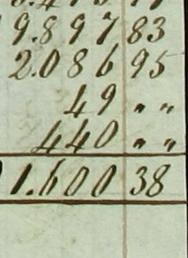 9.897 83
2.086 95
49 " "
440 " "
1.600 38